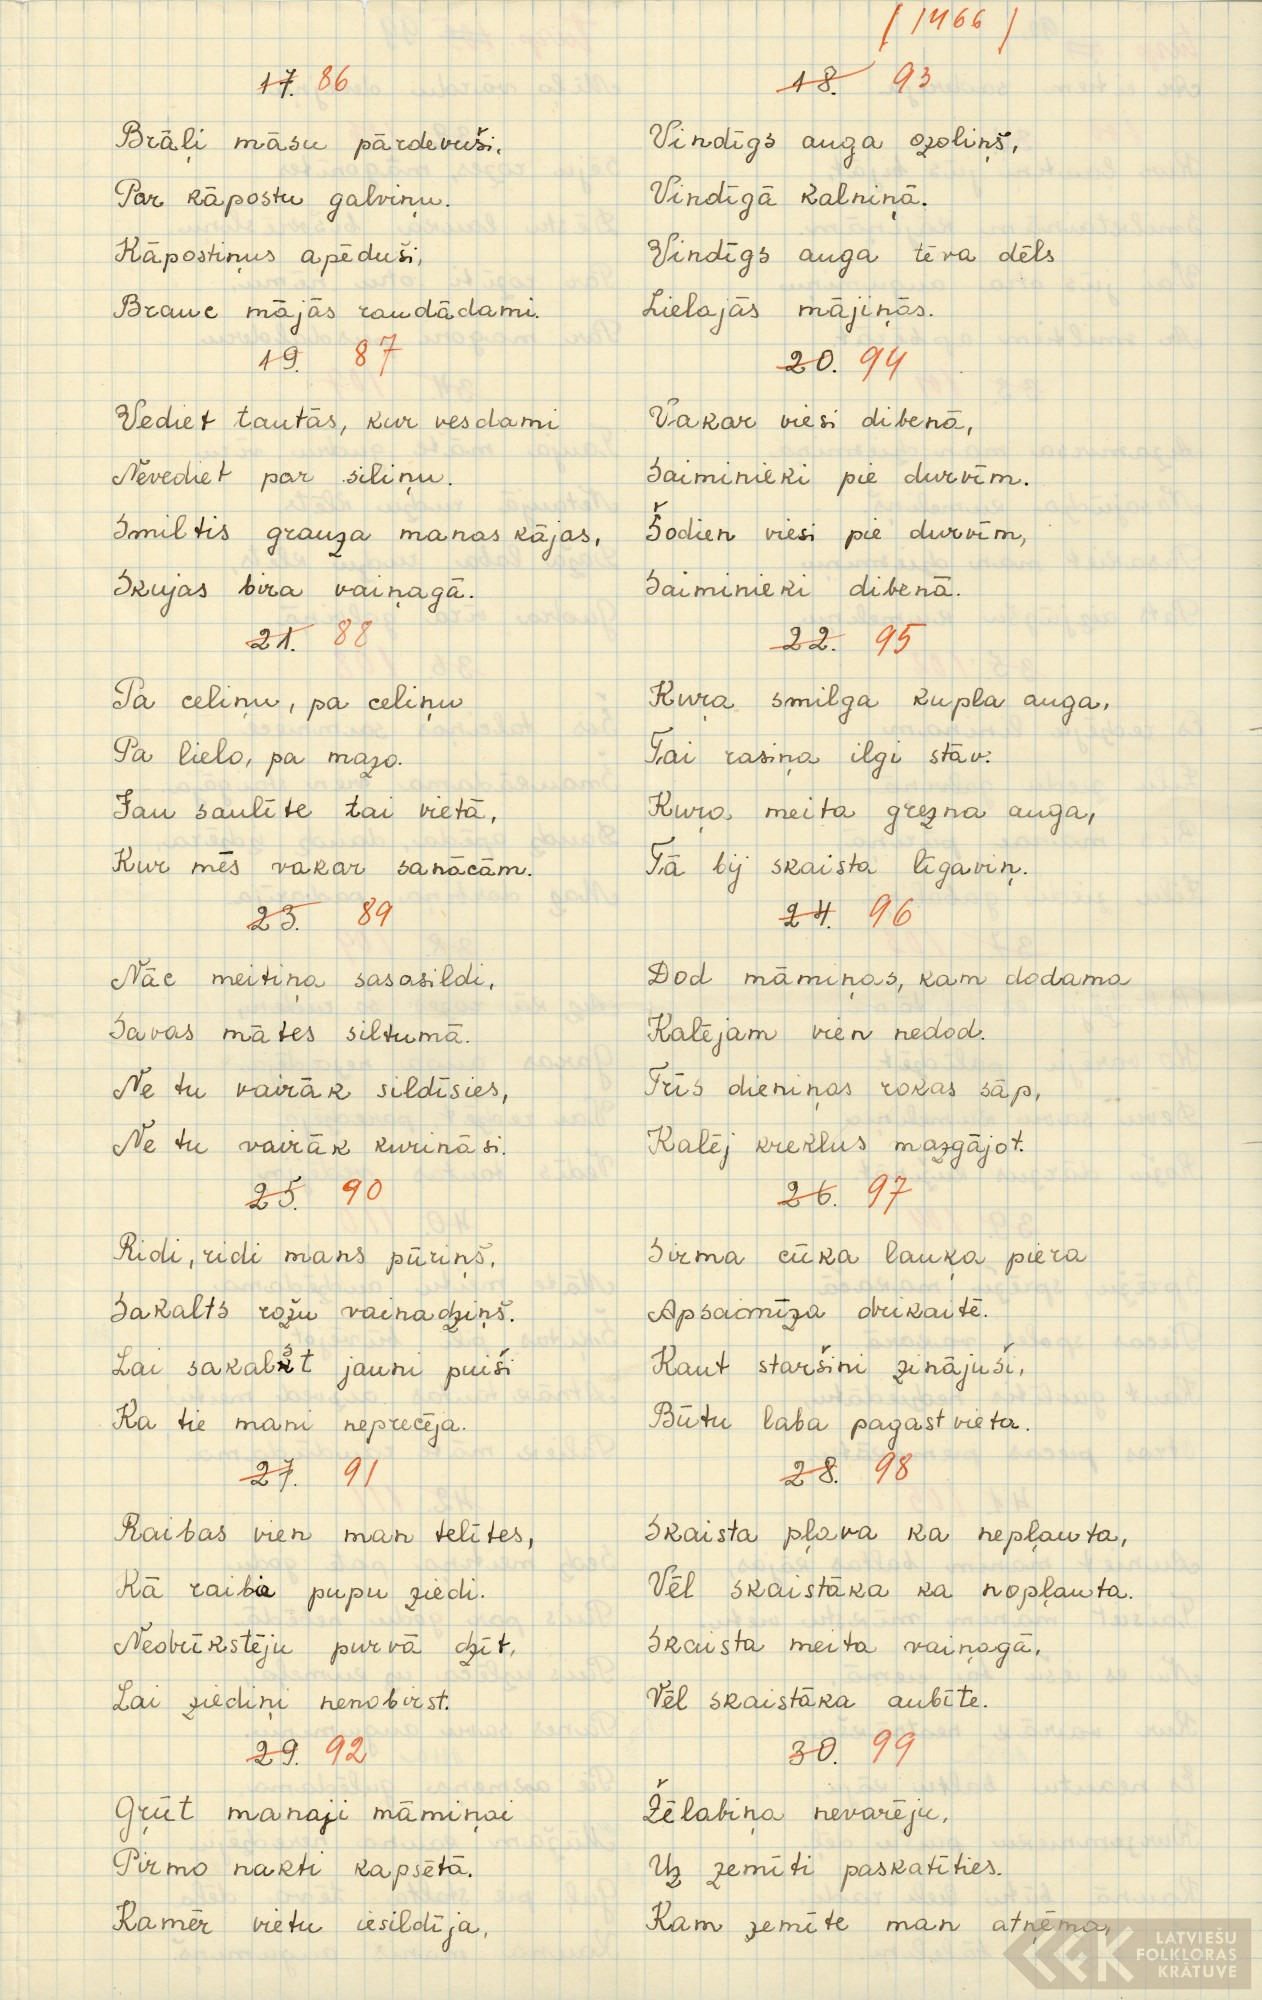 ( 1466 )
17. 86
Brāļi māsu pārdevuši,
Par kāpostu galviņu.
Kāpostiņus apēduši,
Brauc mājās raudādami.
19. 87
Vediet tautās, kur vesdami
Nevediet par siliņu.
Smiltis grauza manas kājas,
Skujas bira vaiņagā.
21. 88
Pa celiņu, pa celiņu
Pa lielo, pa mazo.
Jau saulīte tai vietā,
Kur mēs vakar sanācām.
23. 89
Nāc meitiņa sasasildi,
Savas mātes siltumā.
Ne tu vairāk sildīsies,
Ne tu vairāk kurināsi.
25. 90
Ridi, ridi mans pūriņš,
Sakalts rožu vainadziņš.
Lai sakalst jauni puiši
Ka tie mani neprecēja.
27. 91
Raibas vien man telītes,
Kā raibie pupu ziedi.
Neobrīkstēju purvā dzīt,
Lai ziediņi nenobirst.
29. 92
Gŗūt manaji māmiņai
Pirmo nakti kapsētā.
Kamēr vietu iesildīja,
18. 93
Vindīgs auga ozoliņš,
Vindīgā kalniņā.
Vindīgs auga tēva dēls
Lielajās mājiņās.
20. 94
Vakar viesi dibenā,
Saiminieki pie durvīm.
Šodien viesi pie durvīm,
Saiminieki dibenā.
22. 95
Kuŗa smilga kupla auga,
Tai rasiņa ilgi stāv.
Kuŗa meita grezna auga,
Tā bij skaista līgaviņ.
24. 96
Dod māmiņas, kam dodama
Kalējam vien nedod.
Trīs dieniņas rokas sāp,
Kalēj kreklus mazgājot.
26. 97
Sirma cūka lauķa piera
Apsacmīza drikaitē.
Kaut staršini zinājuši,
Būtu laba pagastvieta.
28. 98
Skaista pļava ka nepļauta,
Vēl skaistāka ka nopļauta.
Skaista meita vaiņagā,
Vēl skaistāka aubīte.
30. 99
Žēlabiņa nevarēju,
Uz zemīti paskatīties.
Kam zemīte man atņēma,
LATVIEŠU
FOLKLORAS
KRĀTUVE